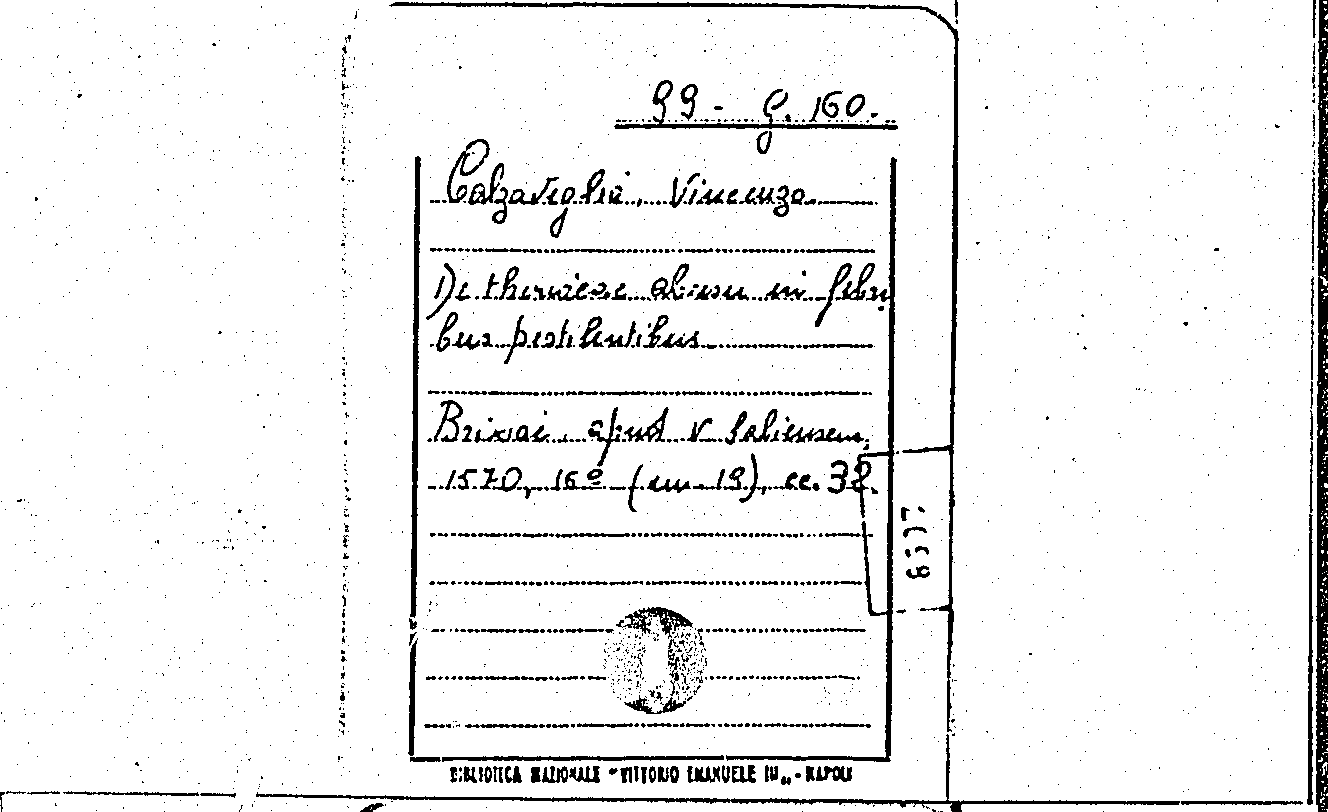 99 - G. 160.
Calzaveglia, Vincenzo
De theriacae abusu in febri
bus pestilentibus
Brixiae, apud V. Sabiensem,
1570, 16º (cm. 19), cc. 38.
BIBLIOTECA NAZIONALE "VITTORIO EMANUELE III" - NAPOLI